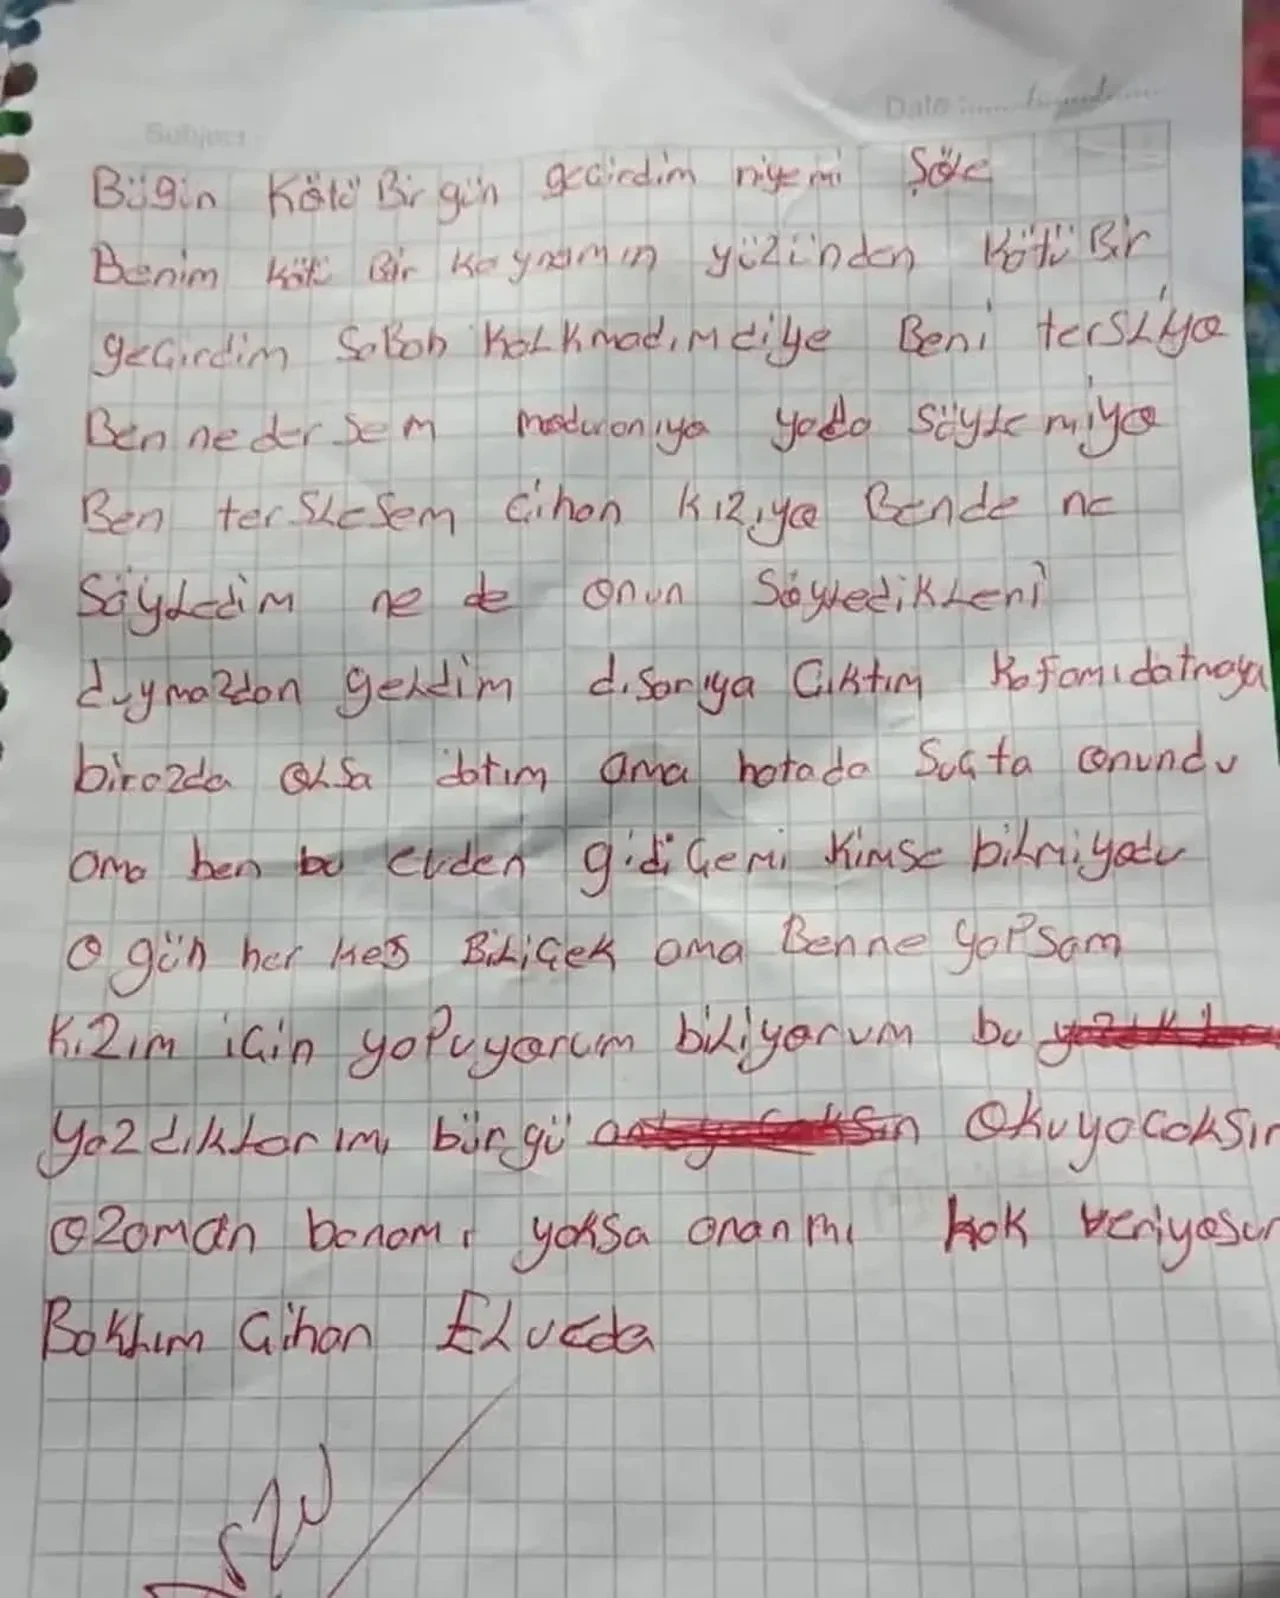 Subject
Date
Bügin Kötü Bir gün geçirdim niyemi Şöle
Benim kötü Bir kaynamın yüzünden kötü Bir
geçirdim Sabah kalkmadım diye Beni tersliya
Ben ne dersem yada Söylemiya
Ben terslesem Cihan kızıya Bende ne
Söyledim ne de onun Söyledikleni
duymazdan geldim dışarıya Çıktım kafamıdatnaya
birazda olsa datım ama hatada Suçta onundu
ama ben bu evden gidiçemi kimse bilmiyadu
O gün herkes Biliçek ama Ben ne yapsam
Kızım için yapuyorum biliyorum bu
yazdıklarımı bürgü okuyacaksın
Ozaman banamı yoksa onanmı hak veriyasun
Baklım Cihan Elveda